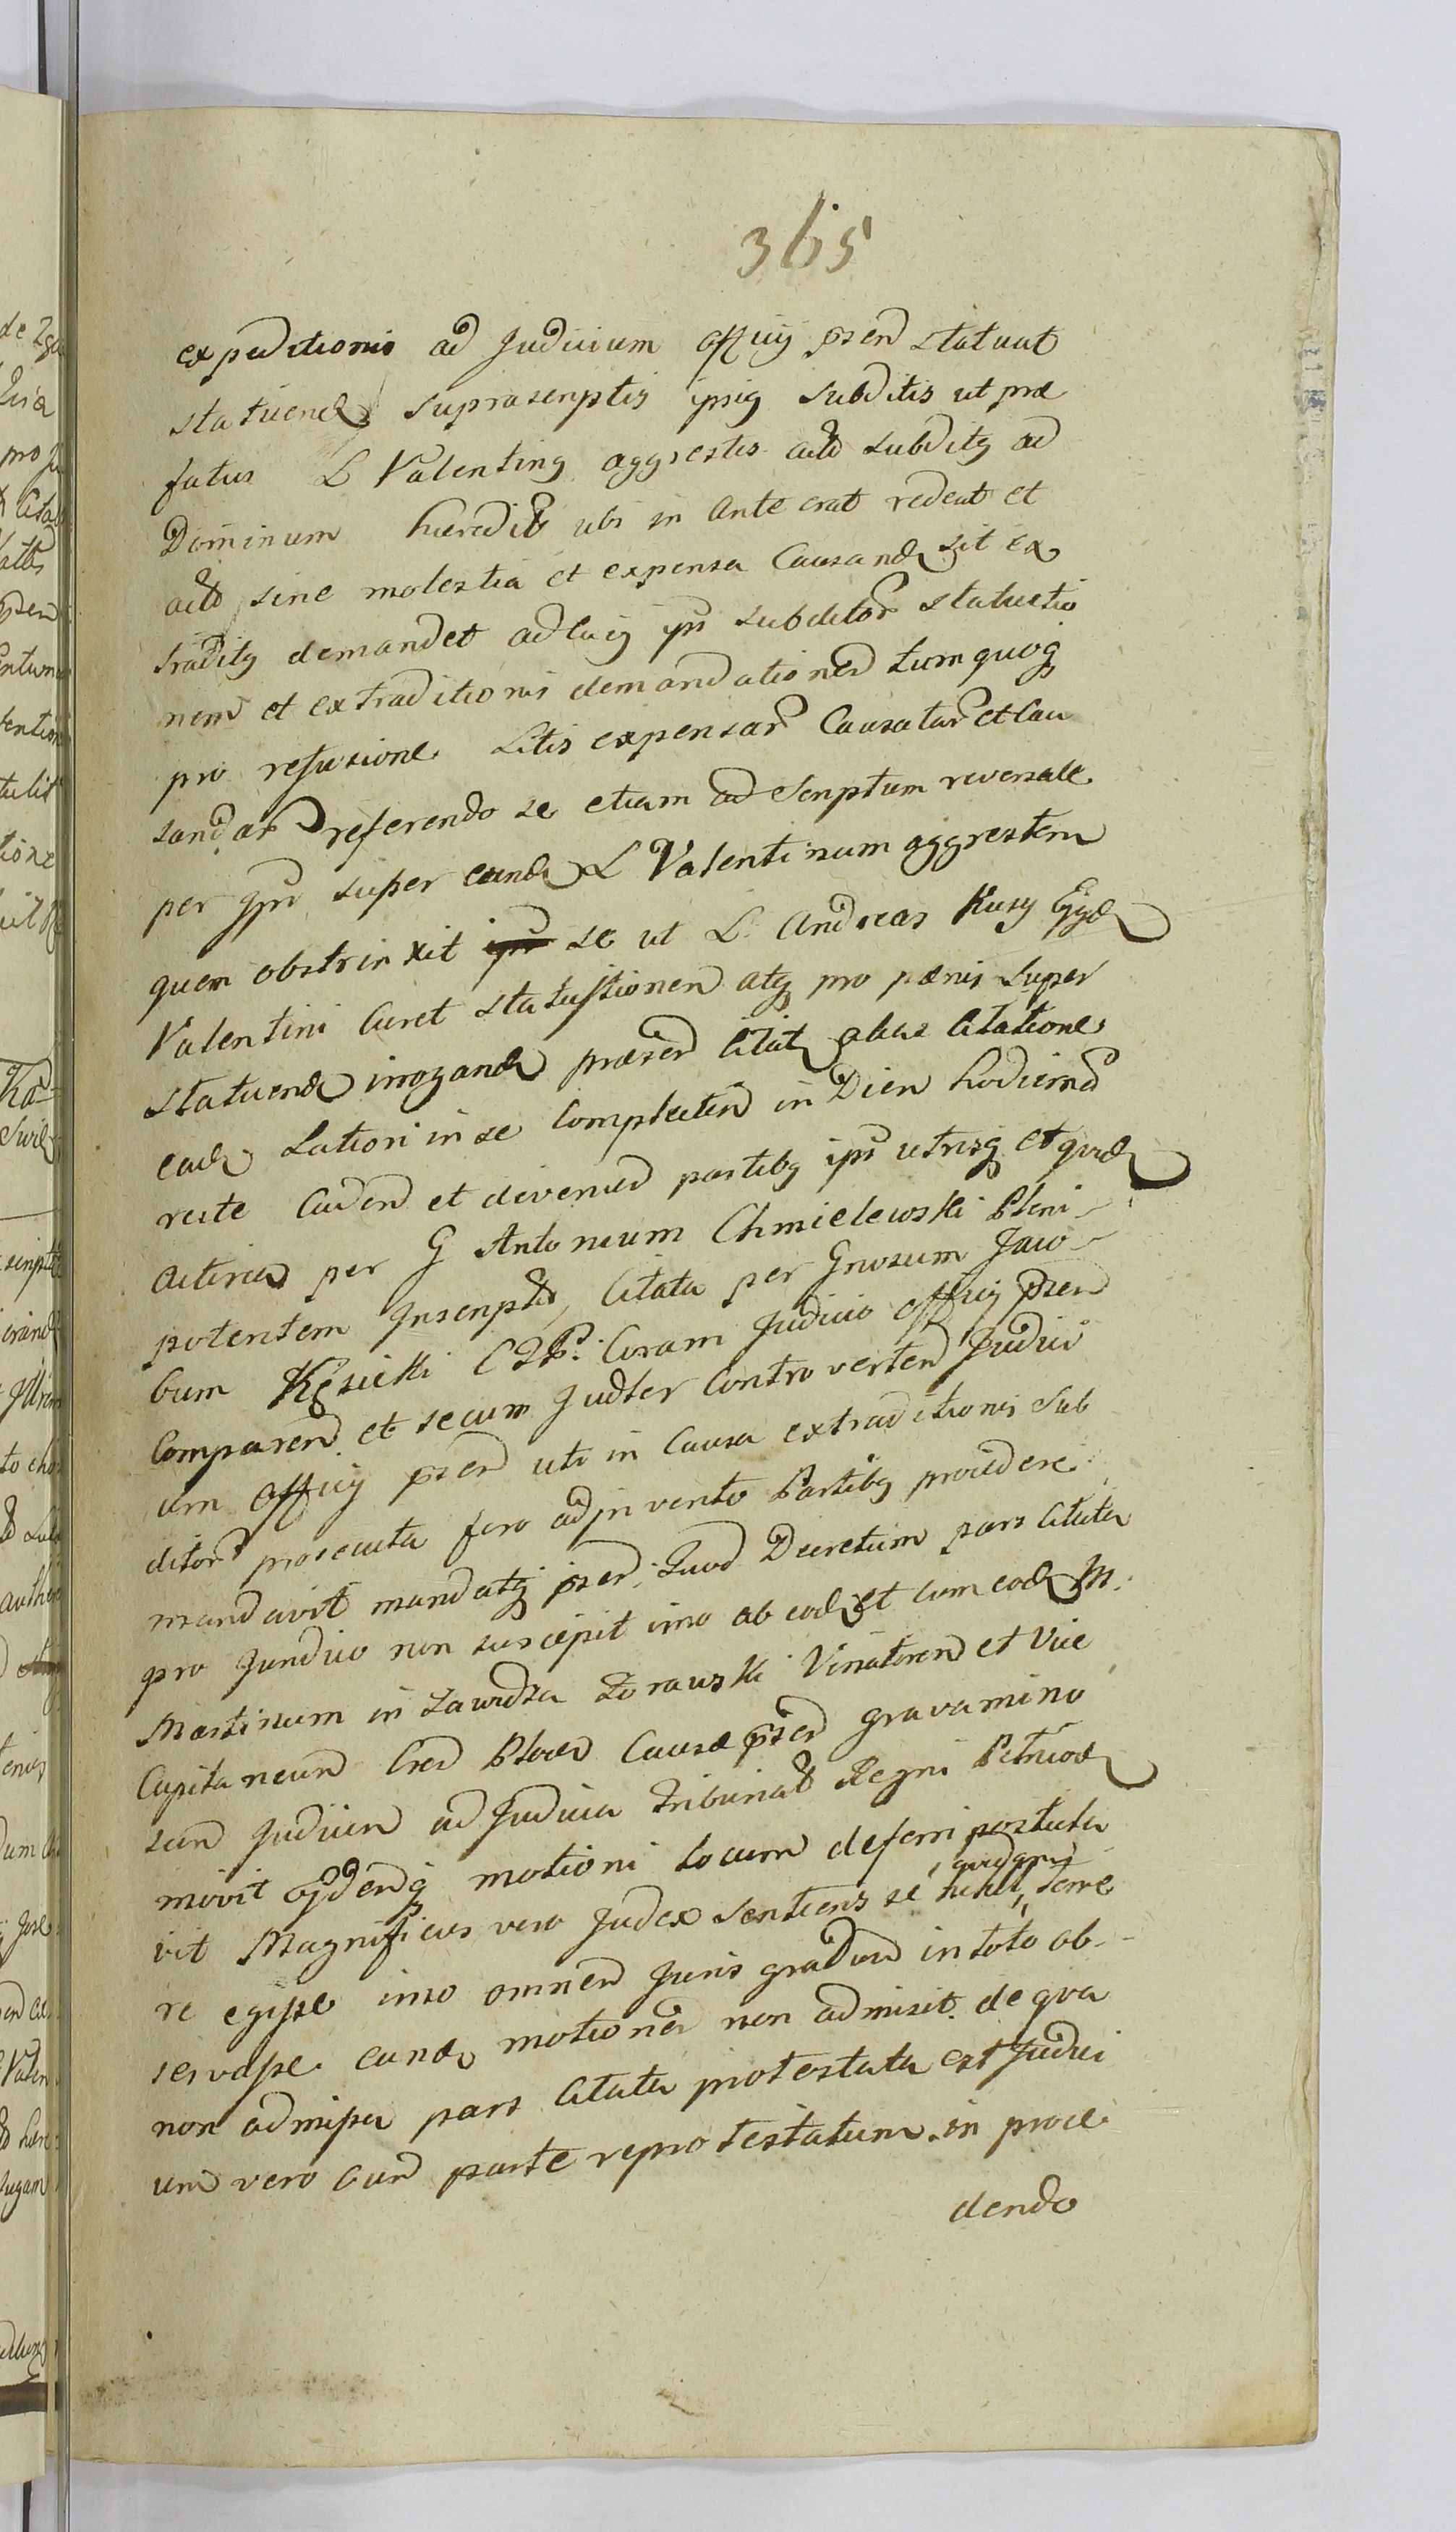 365
expeditionis ad Judicium officij psen statuat
statuend supra scriptis ipsis subditis ut præ
fatus L Valentin9 aggrestis act subdit9 ad
Dominum hæredit ubi in ante erat redeat et
act sine molestia et expensa Causand sit ex
tradit9 demandet ad cuj9 ips subditor statuitio
nem et extraditionis demandationem tum quoq
pro refusione Litis expensar Causatar et Cau
sandar referendo se etiam ad Scriptum reversale
per ips super eund L Valentinum aggrestem
quem obstrinxit se ut L. Andreas Kusy Ejgd
Valentini Curet statuitionem atq pro pænis super
statuend irrogand præsen Citat alias Citatione
ead Latiori in se complecten in Diem hodiernd
recte Caden et devenien partib9 ips utrisq et quid
Actorea per G Antonium Chmielewski Pleni-
potentem Inscript, Citata per Gnosum Jaco-
bum Kęsicki CPP: Coram Judicio officij psen
Comparen et secum Judter Controverten Judici
um officij psen uti in Causa extraditionis sub
ditor prosecuta foro adinvento Partib9 procedere
mandavit mandatq psen. Quod Decretum pars Citata
pro Junduo non suscepit imo ab eod et cum eod M.
Martinum in Zawidza Zorawski Vinatorem et Vice
Capitaneum Cren Plocen Causæ psen gravamino
sum Judicem ad Judicia Tribunal Regni Petricov
movit ejdemq motioni locum deferri postula
vit Magnificus vero Judex sentiens se nihil, quidquid teme
re egisse imo omnem Juris gradum in toto ob-
servasse eand motionem non admisit. de qua
non admissa pars Citata protestata est Judici
um vero cum parte reprotestatum in proce
dendo